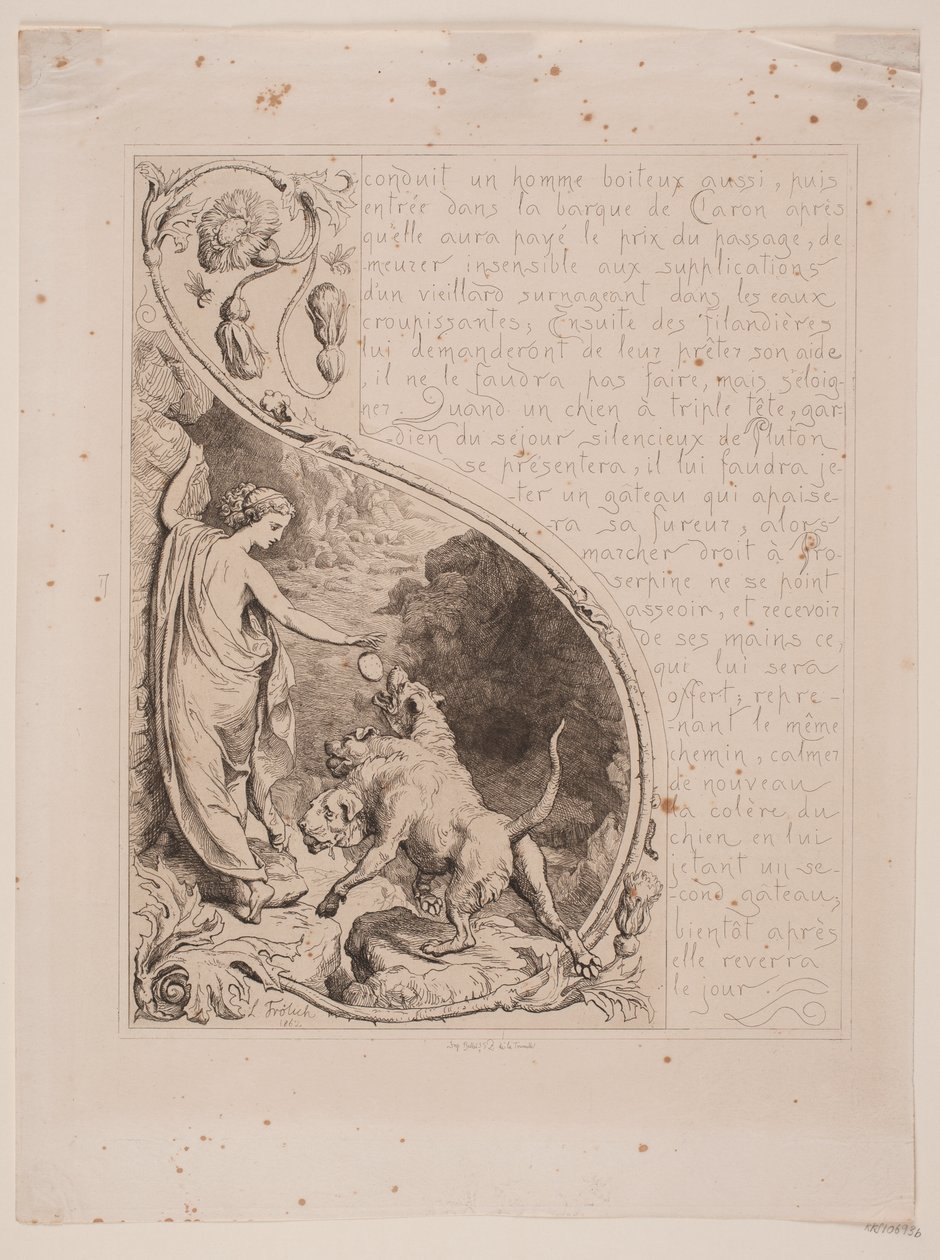 conduit un homme boiteux aussi, puis
entrée dans la barque de Caron après
qu'elle aura payé le prix du passage, de
-meurer insensible aux supplications
d'un vieillard surnageant dans les eaux
croupissantes; Ensuite des filandières
lui demanderont de leur prêter son aide
, il ne le faudra pas faire, mais s'éloig-
ner. Quand un chien à triple tête, gar-
-dien du séjour silencieux de Pluton
se présentera, il lui faudra je-
-ter un gâteau qui apaise-
-ra sa fureur, alors
marcher droit à Pro-
serpine ne se point
asseoir, et recevoir
de ses mains ce,
qui lui sera
offert; repre-
-nant le même
chemin, calmer
de nouveau
la colère du
chien en lui
jetant un se-
-cond gâteau;
bientôt après
elle reverra
le jour.
7
L. Frölich
KKS10693b